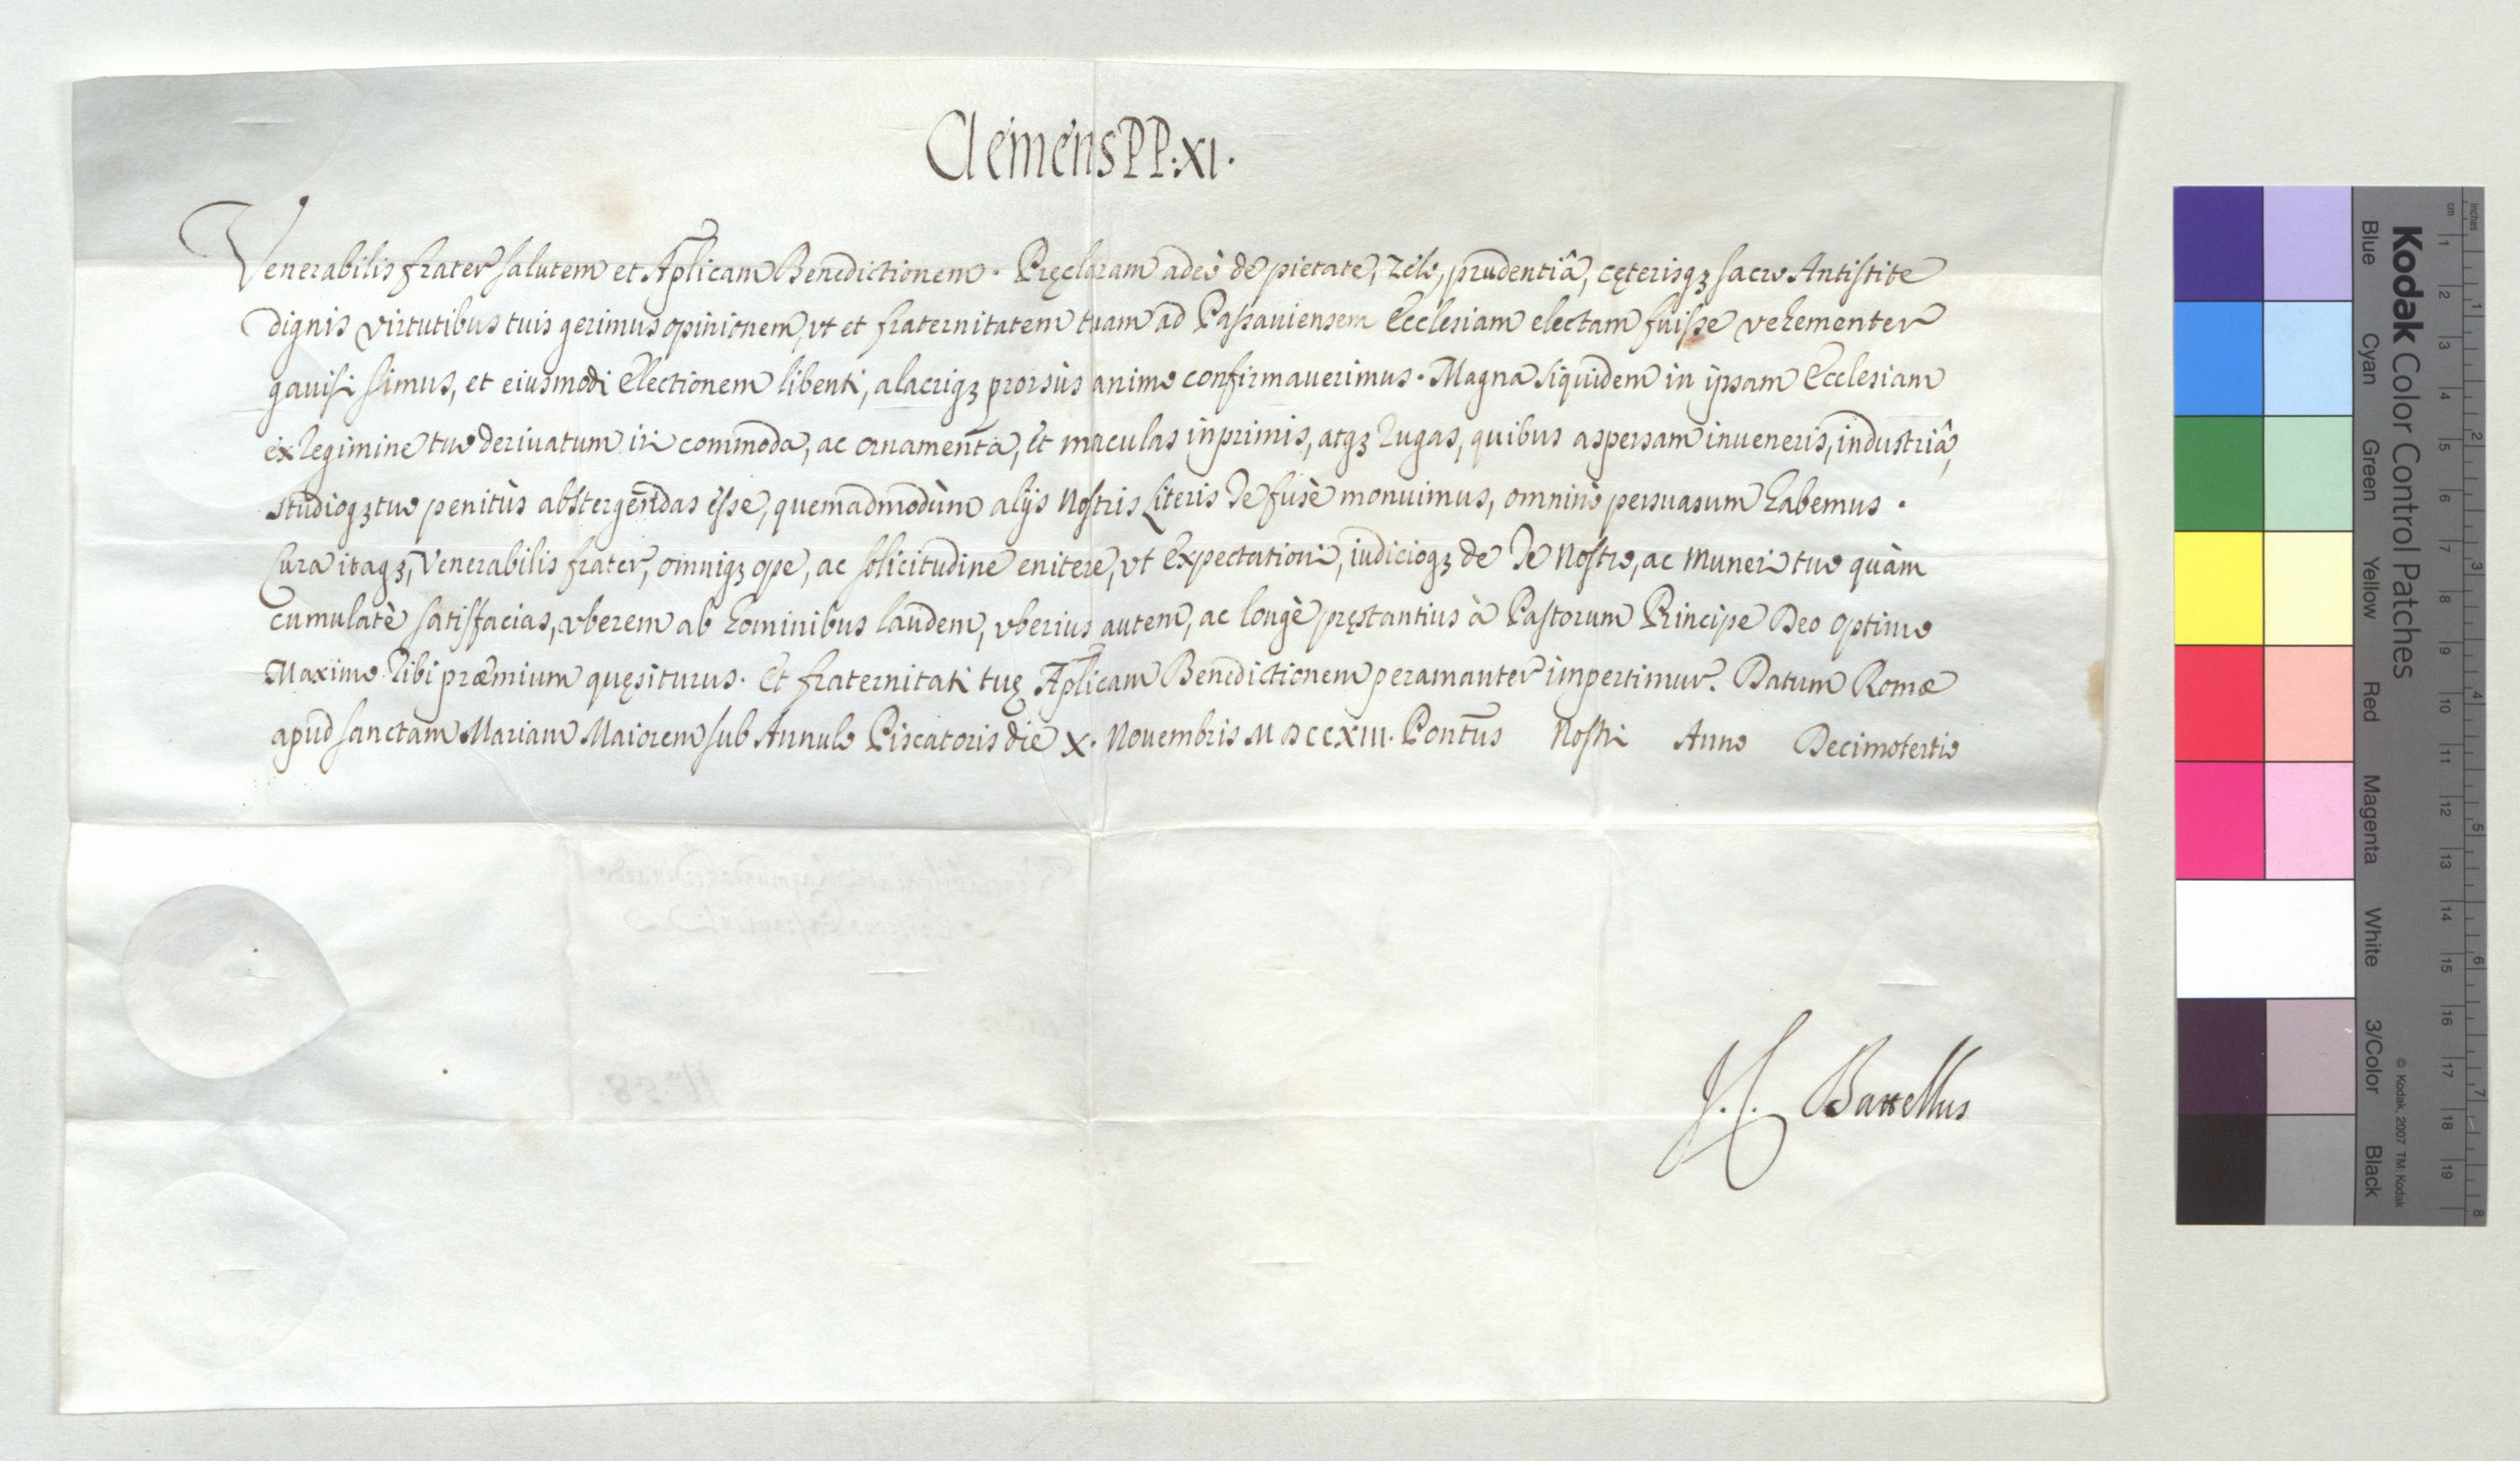 Clemens PP. XI.
Venerabilis frater salutem et Aplicam Benedictionem. Pręclaram adeò de pietate, zelo, prudentiâ, cęterisqꝫ sacro Antistite
dignis virtutibus tuis gerimus opinionem, vt et fraternitatem tuam ad Passauiensem Ecclesiam electam fuisse vehementer
gauisi simus, et eiusmodi electionem libenti, alacriqꝫ prorsùs animo confirmauerimus. Magna siquidem in ipsam Ecclesiam
ex regimine tuo deriuatum iri commoda, ac ornamenta, et maculas inprimis, atqꝫ rugas, quibus aspersam inueneris, industriâ,
studioqꝫ tuo penitùs abstergendas esse, quemadmodùm alijs Nostris Literis Te fusè monuimus, omninò persuasum habemus.
Cura itaqꝫ, Venerabilis frater, omniqꝫ ope, ac solicitudine enitere, vt Expectationi, iudicioqꝫ de Te Nostro, ac Muneri tuo quàm
cumulatè satisfacias, vberem ab hominibus laudem, vberius autem, ac longè pręstantius à Pastorum Principe Deo Optimo
Maximo Tibi præmium quęsiturus. Et fraternitati tuę Aplicam Benedictionem peramanter impertimur. Datum Romæ
apud sanctam Mariam Maiorem sub Annulo Piscatoris die X. Nouembris MDCCXIII. Pontus Nostri Anno Decimotertio
J. C. Battellus
Kodak Color Control Patches
Blue Cyan Green Yellow Red Magenta White 3/Color Black
© Kodak, 2007 TM: Kodak
inches 1 2 3 4 5 6 7 8
cm 1 2 3 4 5 6 7 8 9 10 11 12 13 14 15 16 17 18 19